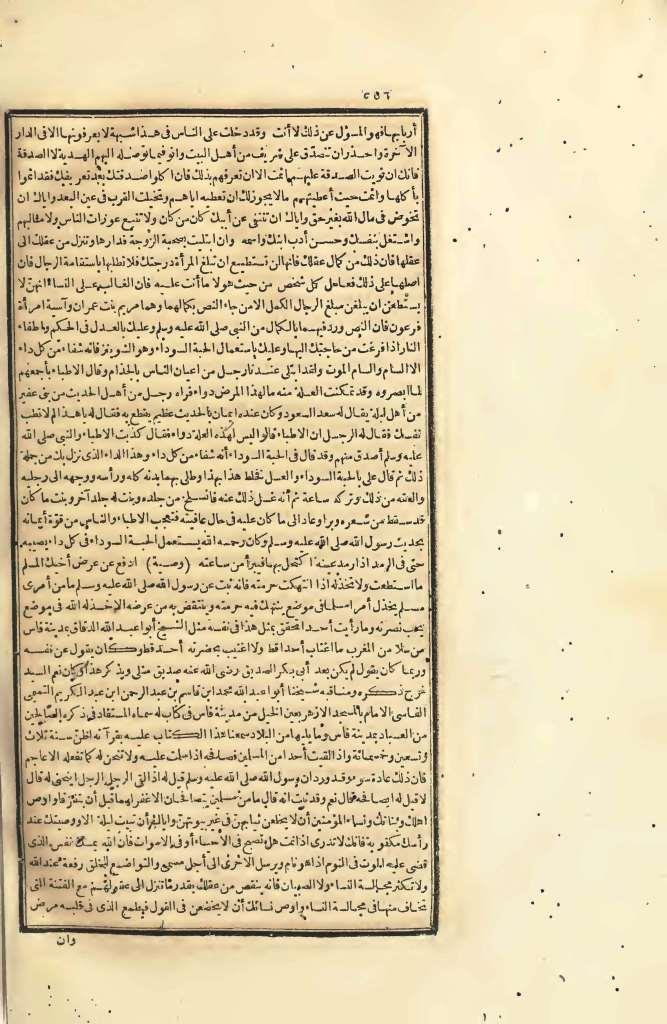 ٤٥٦
أربابها فهو المسؤل عن ذلك لا أنت وقد دخلت على الناس فى هذا شبهة لا يعرفونها الا فى الدار
الآخرة واحذر ان تتصدق على شريف من أهل البيت وانو فيما توصله اليهم الهدية لا الصدقة
فانك ان نويت الصدقة عليهم أثمت الا ان تعرفهم بذلك فان اكلوا صدقتك بعد تعريفك فقد اثموا
بأكلها واثمت حيث أعطيتهم ما لا يجوز لك ان تعطيه اياهم وتخيلت القرب فى عين البعد واياك ان
تخوض فى مال الله بغير حق واياك ان تنتفى عن أبيك كان من كان ولا تتبع عورات الناس ولا مثالبهم
واشتغل بنفسك وحسن أدب ابنك واسمه وان ابتليت بصحبة الزوجة فدارها وتنزل من عقلك الى
عقلها فان ذلك من كمال عقلك فانها لن تستطيع ان تبلغ المرأة درجتك فلا تطلبها باستقامة الرجال فان
اصلها على ذلك فعامل كل شخص من حيث هو لا ما أنت عليه فان الغالب على النساء انهن لا
يستطعن ان يبلغن مبلغ الرجال الكمل الا من جاء النص بكمالهما وهما مريم بنت عمران وآسية امرأة
فرعون فان النص ورد فيهما بالكمال من النبى صلى الله عليه وسلم وعليك بالعدل فى الحكم وباطفاء
النار اذا فرغت من حاجتك اليها وعليك باستعمال الحبة السوداء وهو الشونيز فانه شفاء من كل داء
الا السام والسام الموت ولقد ابتلى عندنا رجل من اعيان الناس بالجذام وقال الاطباء بأجمعهم
لما ابصروه وقد تمكنت العلة منه ما لهذا المرض دواء فراه رجل من أهل الحديث من بنى عفير
من أهل لبلة يقال له سعد السعود وكان عنده ايمان بالحديث عظيم يقطع به فقال له يا هذا لم لا تطب
نفسك فقال له الرجل ان الاطباء قالوا ليس لهذه العلة دواء فقال كذبت الاطباء والنبى صلى الله
عليه وسلم أصدق منهم وقد قال فى الحبة السوداء أنه شفاء من كل داء وهذا الداء الذى نزل بك من جملة
ذلك ثم قال على بالحبة السوداء والعسل فخلط هذا بهذا وطلى بهما بدنه كله ورأسه ووجهه الى رجليه
والعقه من ذلك وتركه ساعة ثم أنه غسل ذلك عنه فانسلخ من جلده ونبت له جلد آخر ونبت ما كان
قد سقط من شعره وبرأ وعاد الى ما كان عليه فى حال عافيته فتعجب الاطباء والناس من قوة أيمانه
بحديث رسول الله صلى الله عليه وسلم وكان رحمه الله يستعمل الحبة السوداء فى كل داء يصيبه
حتى فى الرمد اذا رمد عينه اكتحل بها فيبرأ من ساعته (وصية) ادفع عن عرض أخيك المسلم
ما استطعت ولا تخذله اذا انتهكت حرمته فانه ثبت عن رسول الله صلى الله عليه وسلم ما من امرئ
مسلم يخذل أمر امسلما فى موضع ينتهك فيه حرمته وينتقص به من عرضه الا خذله الله فى موضع
يحب نصرته وما رأيت أحدا تحقق بمثل هذا فى نفسه مثل الشيخ أبو عبد الله الدقاق بمدينة فاس
من سلا من المغرب ما اغتاب أحدا قط ولا اغتيب بحضرته أحد قط وكان يقول عن نفسه
وربما كان يقول لم يكن بعد أبى بكر الصديق رضى الله عنه صديق مثلى ويذكر هذا وكان نعم السيد
خرج ذكره ومناقبه شيخنا أبو عبد الله محمد ابن قاسم بن عبد الرحمن ابن عبد الكريم التميمى
الفاسى الامام بالمسجد الازهر بعين الخيل من مدينة فاس فى كتاب له سماه المستفاد فى ذكر الصالحين
من العباد بمدينة فاس وما يليها من البلاد سمعنا هذا الكتاب عليه بقرآته اظن سنة ثلاث
وتسعين وخمسمائة واذا لقيت أحدا من المسلمين فصافحه اذا سلمت عليه ولا تنحن له كما تفعله الاعاجم
فان ذلك عادة سوء وقد ورد ان رسول الله صلى الله عليه وسلم قيل له اذا لقى الرجل الرجل اينحنى له قال
لا قيل له ايصافحه قال نعم وقد ثبت انه قال ما من مسلمين يتصافحان الا غفر لهما قبل أن يتفرقا واوص
اهلك وبناتك ونساء المؤمنين أن لا يخلعن ثيابهن فى غير بيوتهن واياك أن تبيت ليلة الا ووصيتك عند
رأسك مكتوبة فانك لا تدرى اذا نمت هل تصبح فى الأحياء أو فى الاموات فان الله يمسك نفس الذى
قضى عليه الموت فى النوم اذا هو نام ويرسل الاخرى الى أجل مسمى والتواضع للخلق رفعة عند الله
ولا تكثر مجالسة النساء ولا الصبيان فانه ينقص من عقلك بقدر ما تنزل الى عقولهم مع الفتنة التى
تخاف منها فى مجالسة النساء واوص نسائك أن لا يخضعن فى القول فيطمع الذى فى قلبه مرض
وان